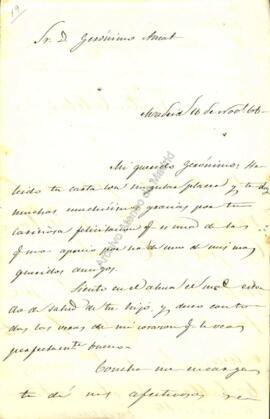 19
Sr. D. Gerónimo Amat
Madrid 16 de Novb. 66
Mi querido Gerónimo: He
leido tu carta con singular placer y te doy
muchas muchisimas gracias por tu
cariñosa felicitacion q. es una de las
q. mas aprecio por ser de uno de mis mas
queridos amigos.
Siento en el alma el mal estado
de salud de tu hijo, y deseo con to-
das las veras de mi corazon q. le veas
perfectamente bueno.
Concha me encarga
te dé sus afectuosos re
Archivo Manero de Madrid